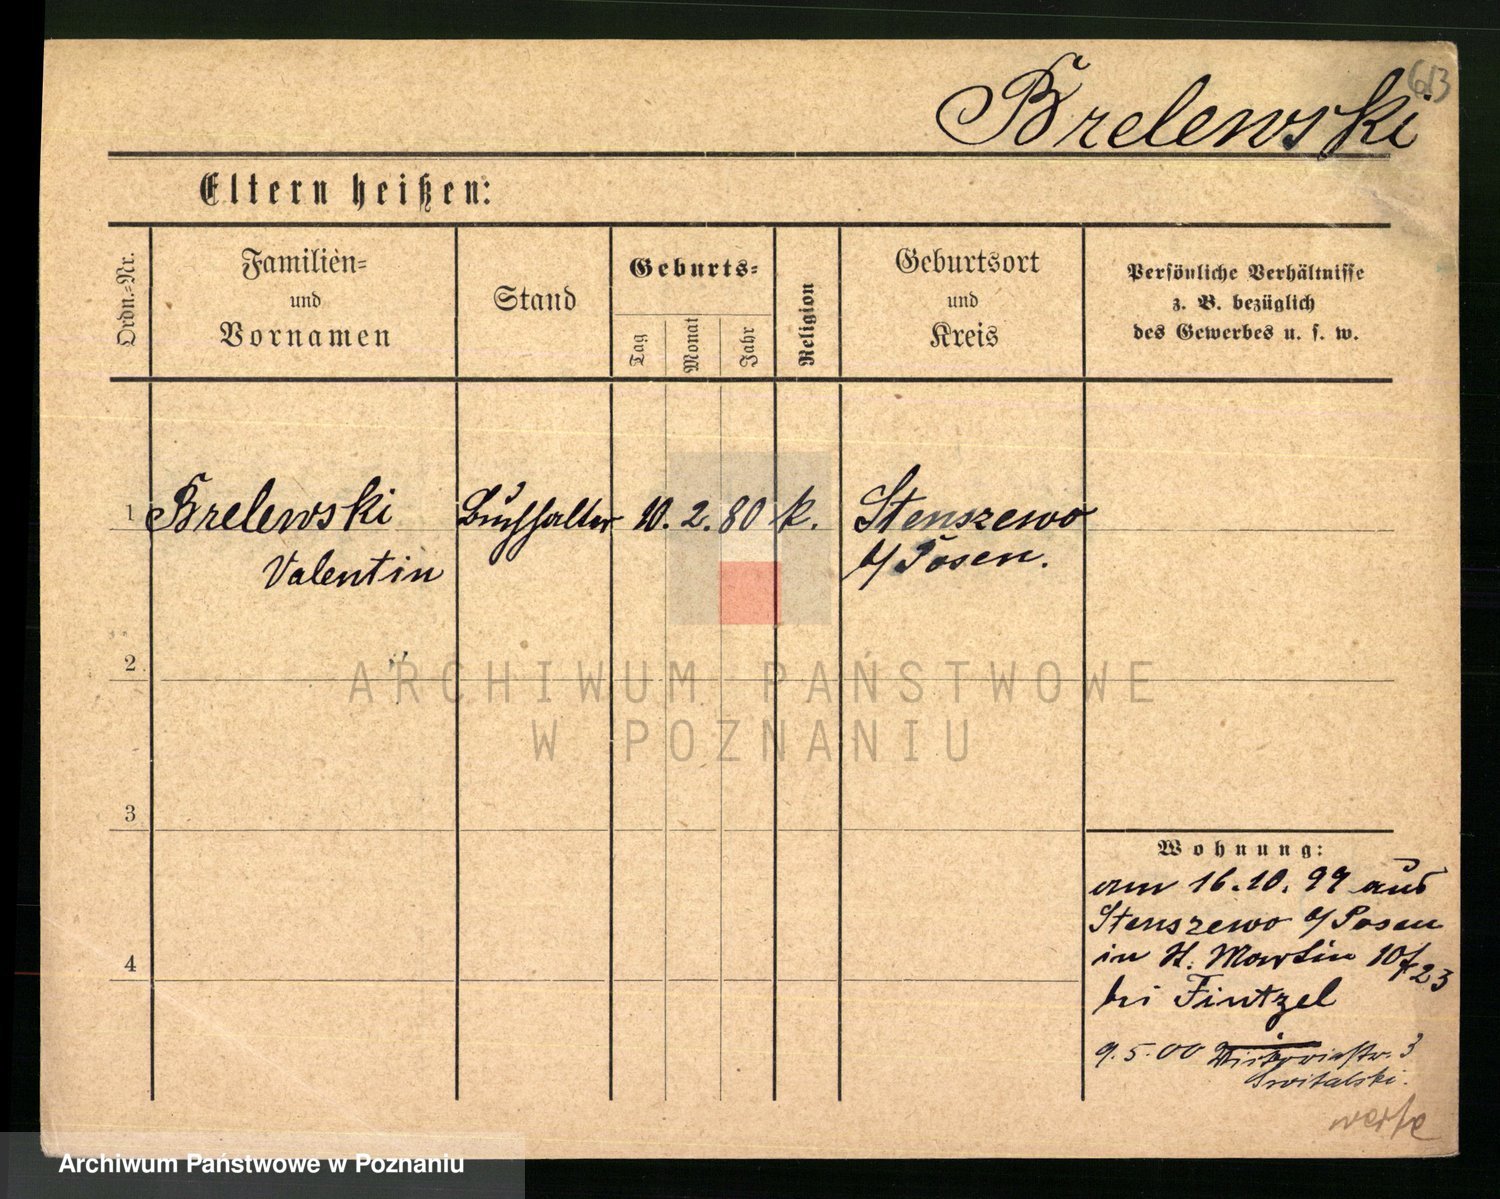 613
Brelewski
Eltern heißen:
Ordn.-Nr.
Familien-
und
Vornamen
Stand
Geburts-
Tag
Monat
Jahr
Religion
Geburtsort
und
Kreis
Persönliche Verhältnisse
z. B. bezüglich
des Gewerbes u. s. w.
1 Brelewski Buchhalter 10. 2. 80 k. Stenszewo
Valentin b/ Posen.
2
ARCHIWUM PAŃSTWOWE
W POZNANIU
3
Wohnung:
am 16.10.99 aus
Stenszewo b/ Posen
in St. Martin 10/23
bei Fintzel
4
9.5.00 Victoriastr. 3
Switalski.
Archiwum Państwowe w Poznaniu